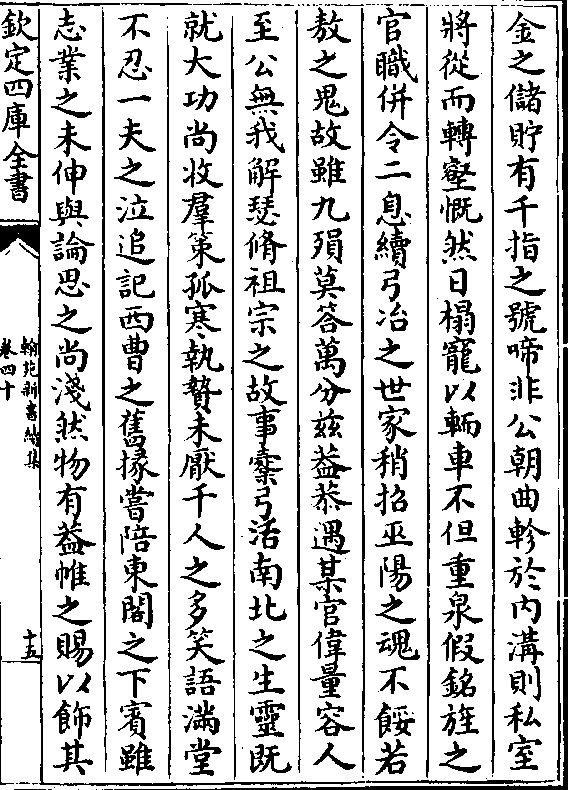 金之儲貯有千指之號啼非公朝曲軫於内溝則私室
將從而轉壑慨然日榻寵以輀車不但重泉假銘旌之
官職併令二息續弓冶之世家稍招巫陽之魂不餒若
敖之鬼故雖九殞莫答萬分兹葢恭遇某官偉量容人
至公無我解瑟脩祖宗之故事櫜弓活南北之生靈既
就大功尚收羣策孤寒執贄未厭千人之多笑語滿堂
不忍一夫之泣追記西曹之舊掾嘗陪東閣之下賓雖
志業之未伸與論思之尚淺然物有葢帷之賜以飾其
欽定四庫全書
翰苑新書續集
卷四十
十五